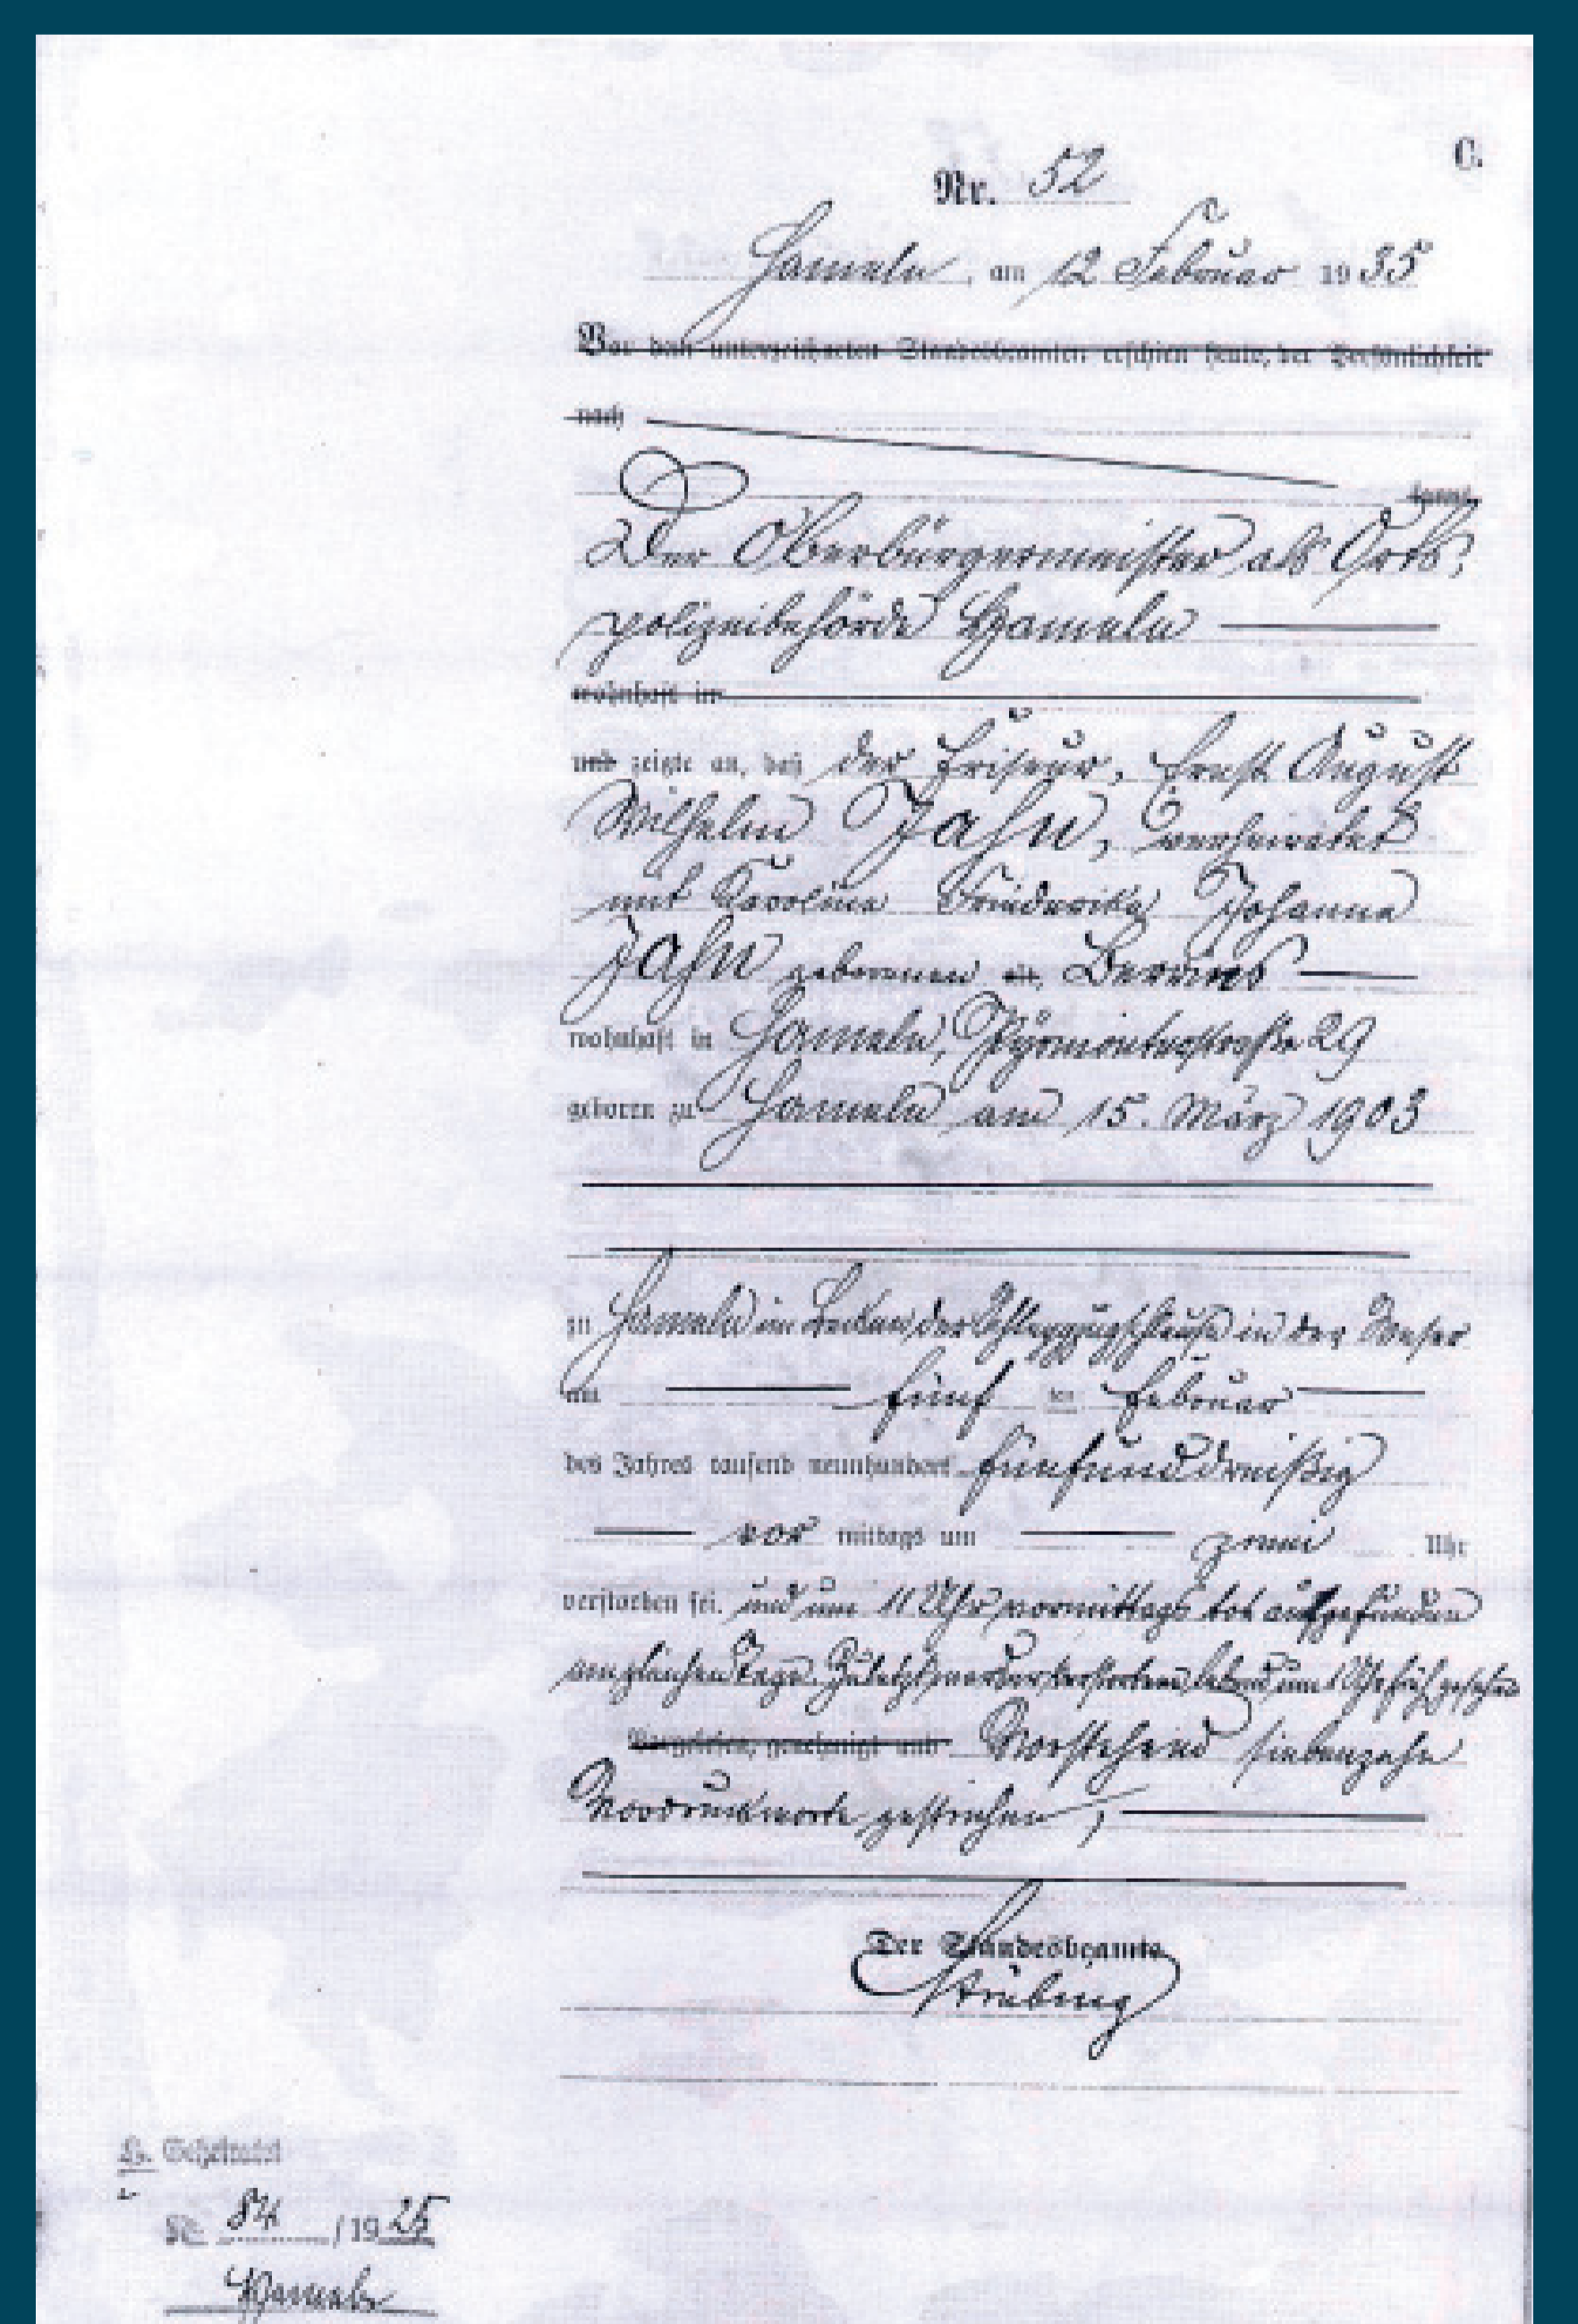 C.
Nr. 52
Hameln, am 12 Februar 1935
Vor dem unterzeichneten Standesbeamten erschien heute, der Persönlichkeit
nach
kannt,
Der Oberbürgermeister als Orts,
polizeibehörde Hameln
wohnhaft in
und zeigte an, daß der Friseur, Ernst August
Wilhelm Jahn, verheiratet
mit Karoline Friederike Johanna
Jahn geborenen alt,
wohnhaft in Hameln, Pyrmonterstraße 29
geboren zu Hameln am 15. März 1903
zu Hameln im Becken der Schleppzugschleuse in der Weser
am fünf ten Februar
des Jahres tausend neunhundert fünfunddreißig
vor mittags um zwei Uhr
verstorben sei. und um 11 Uhr vormittags tot aufgefunden
am gleichen Tage. Zuletzt wurde der Verstorbene lebend um 1 Uhr früh gesehen
Vorgelesen, genehmigt und Vorstehend siebenzehn
Vordruckworte gestrichen,
Der Standesbeamte
Strübing
Nr. 84 / 1925
Hameln